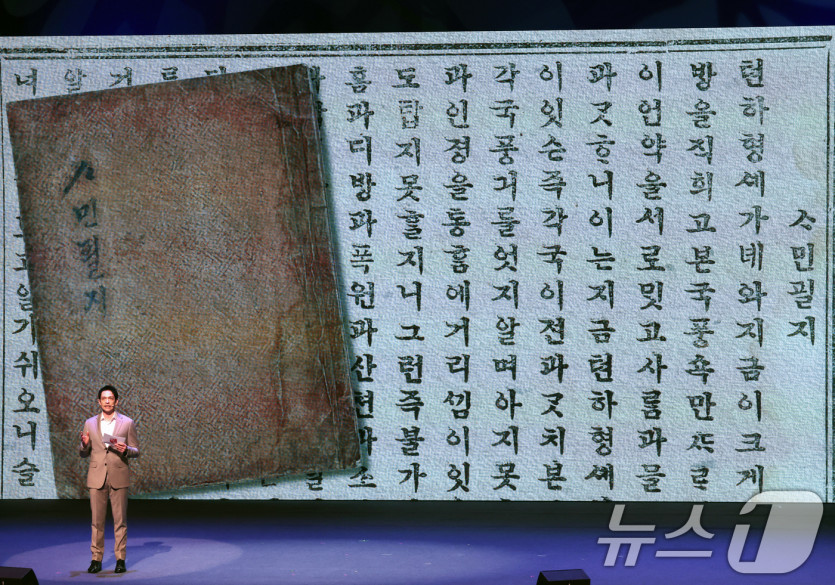 ᄉᆞ민필지
텬하형셰가녜와지금이크게
방을직희고본국풍쇽만
이언약을서로밋고사ᄅᆞᆷ과물
과ᄀᆞᆺᄒᆞ니이는지금텬하형셰
이잇슨즉각국이전과ᄀᆞᆺ치본
각국풍긔를엇지알며아지못
과인졍을통ᄒᆞᆷ에거리ᄭᅵᆷ이잇
도탑지못ᄒᆞᆯ지니그런즉불가
흠과디방과폭원과산쳔과소
거
알
너
기쉬오니슬
ᄉᆞ민필지
뉴스1